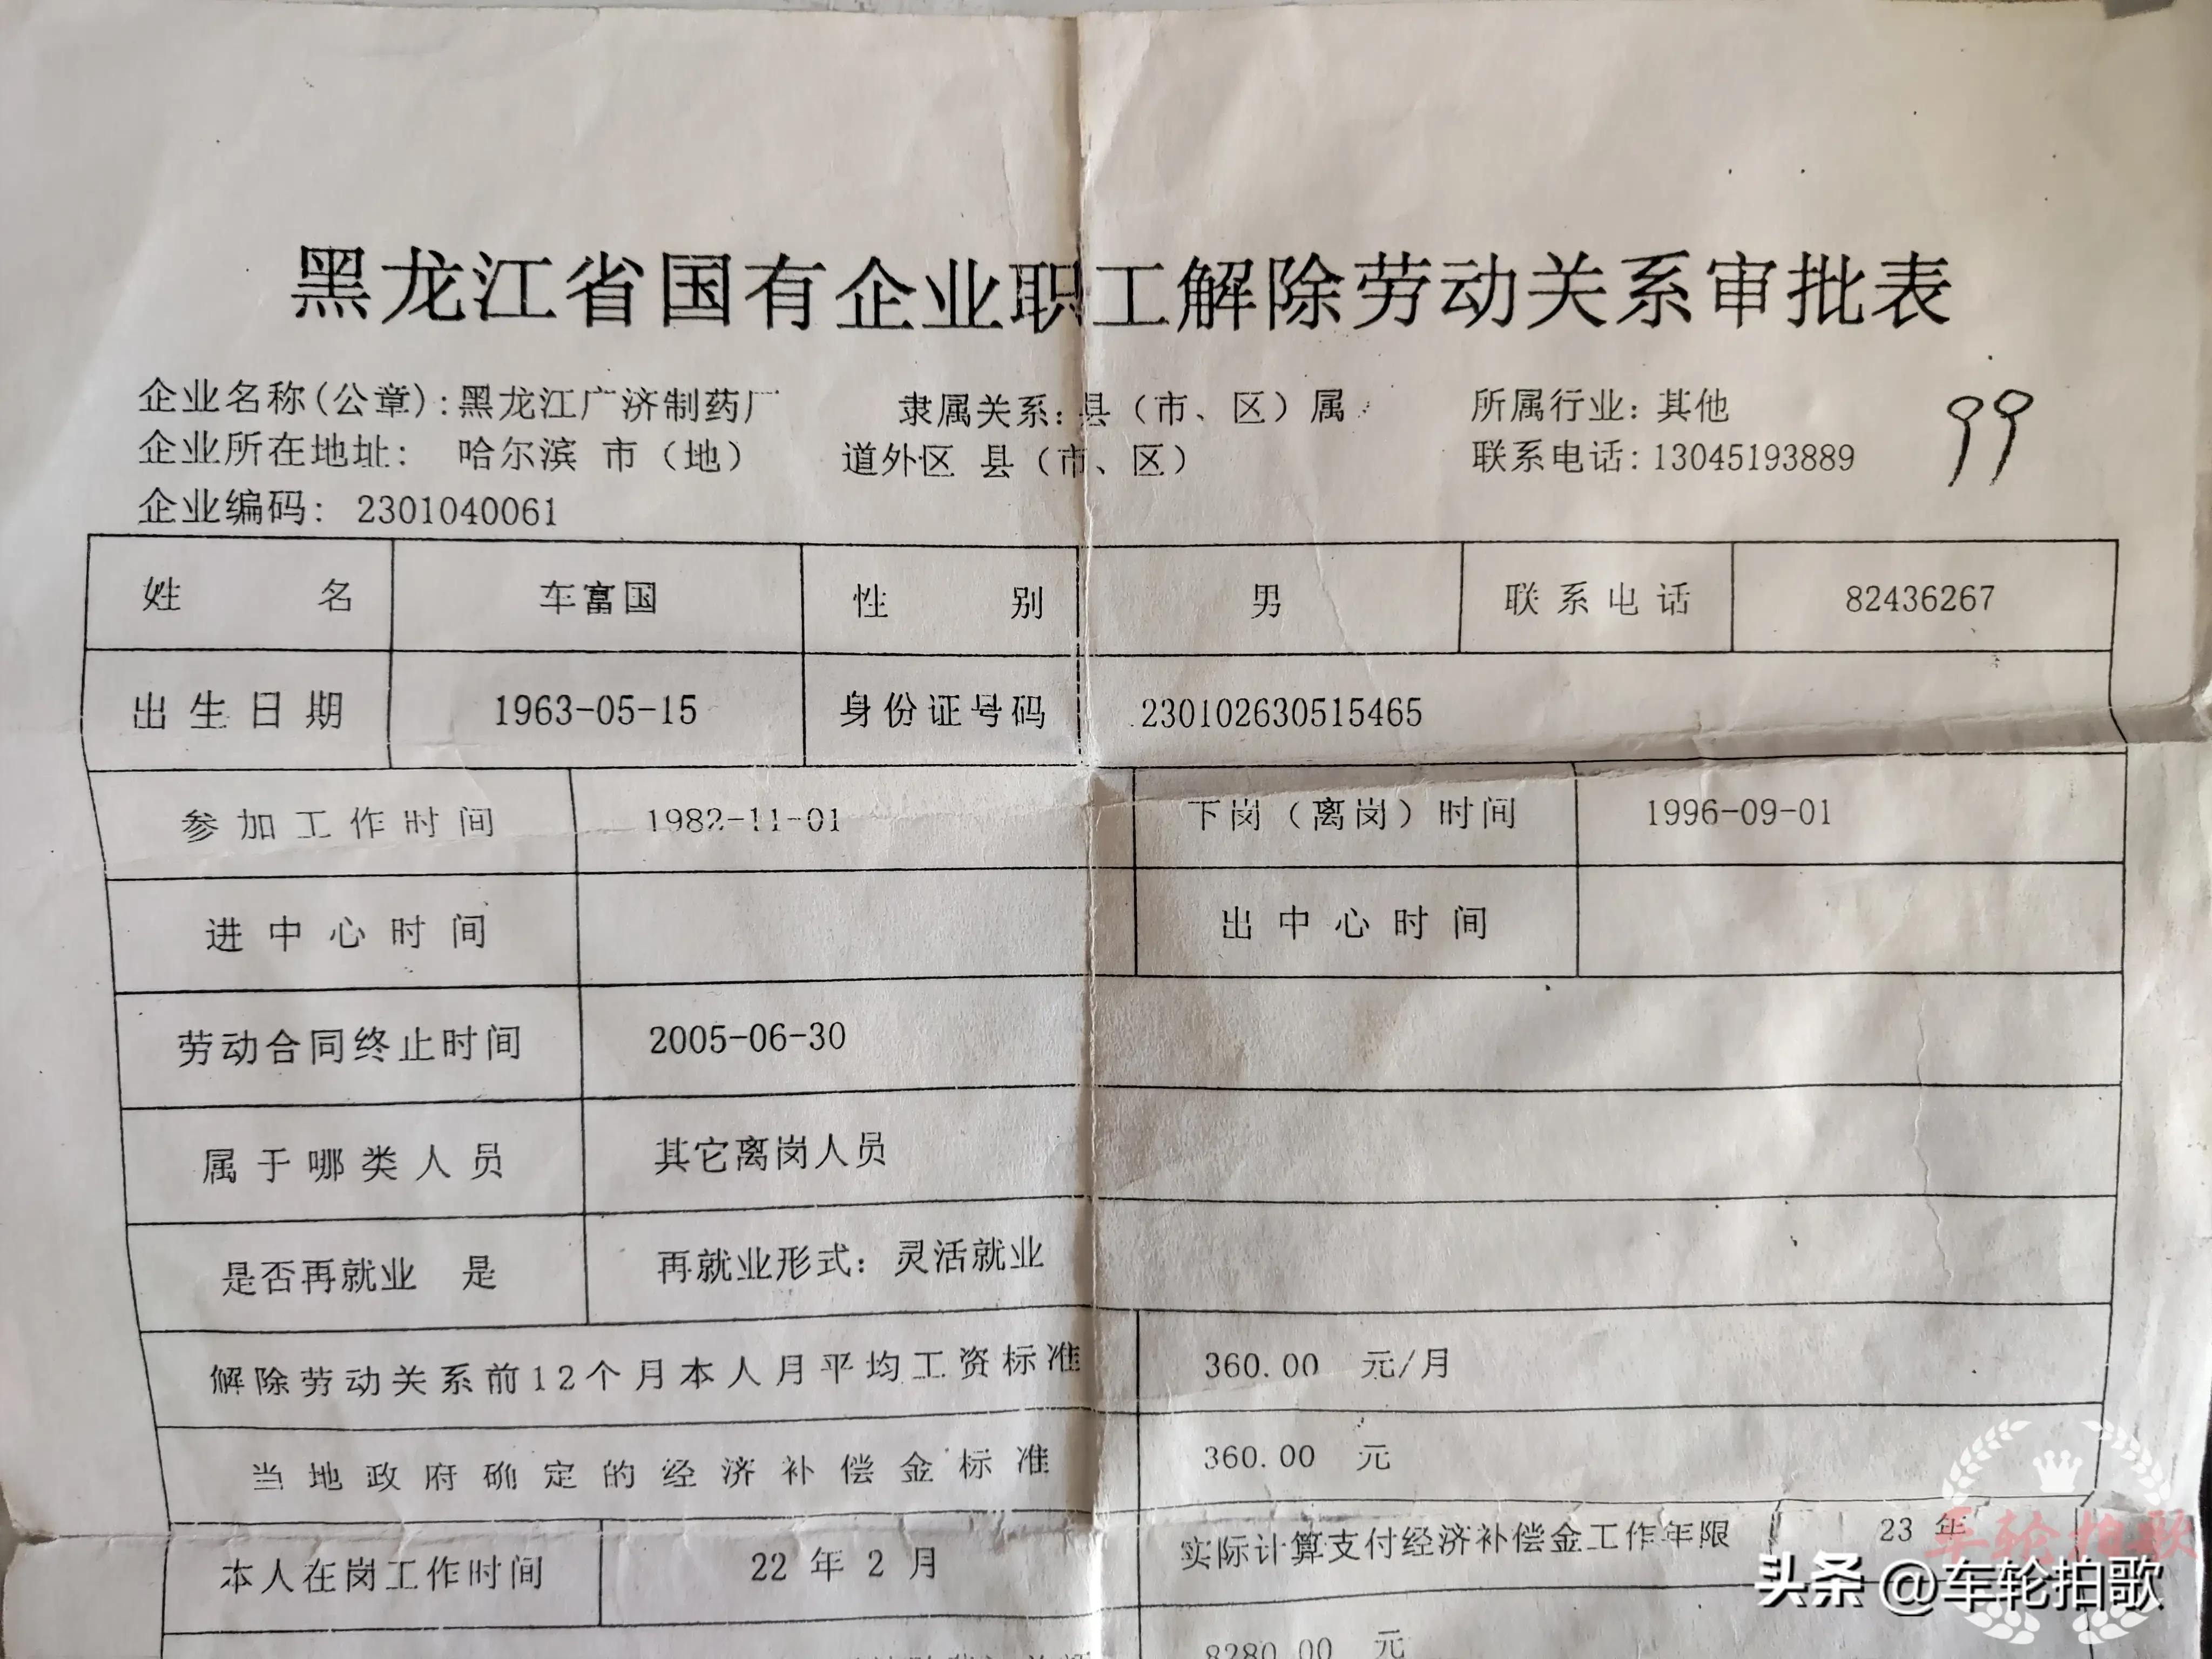 黑龙江省国有企业职工解除劳动关系审批表
企业名称(公章):黑龙江广济制药厂 隶属关系:县(市、区)属 所属行业:其他
99
企业所在地址: 哈尔滨 市(地) 道外区 县(市、区) 联系电话:13045193889
企业编码: 2301040061
姓名 车富国 性别 男 联系电话 82436267
出生日期 1963-05-15 身份证号码 230102630515465
参加工作时间 1982-11-01 下岗(离岗)时间 1996-09-01
进中心时间 出中心时间
劳动合同终止时间 2005-06-30
属于哪类人员 其它离岗人员
是否再就业 是 再就业形式: 灵活就业
解除劳动关系前12个月本人月平均工资标准 360.00 元/月
当地政府确定的经济补偿金标准 360.00 元
本人在岗工作时间 22年2月 实际计算支付经济补偿金工作年限 23年
8280.00 元
车轮拍歌
头条 @车轮拍歌